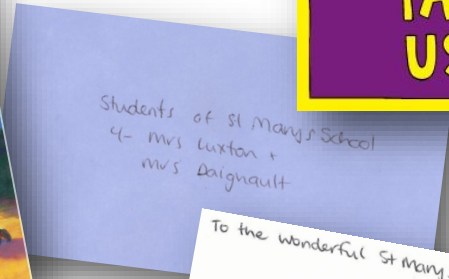 US
Students of St Marys School
4- Mrs Luxton +
Mrs Daignault
To the wonderful St Mary